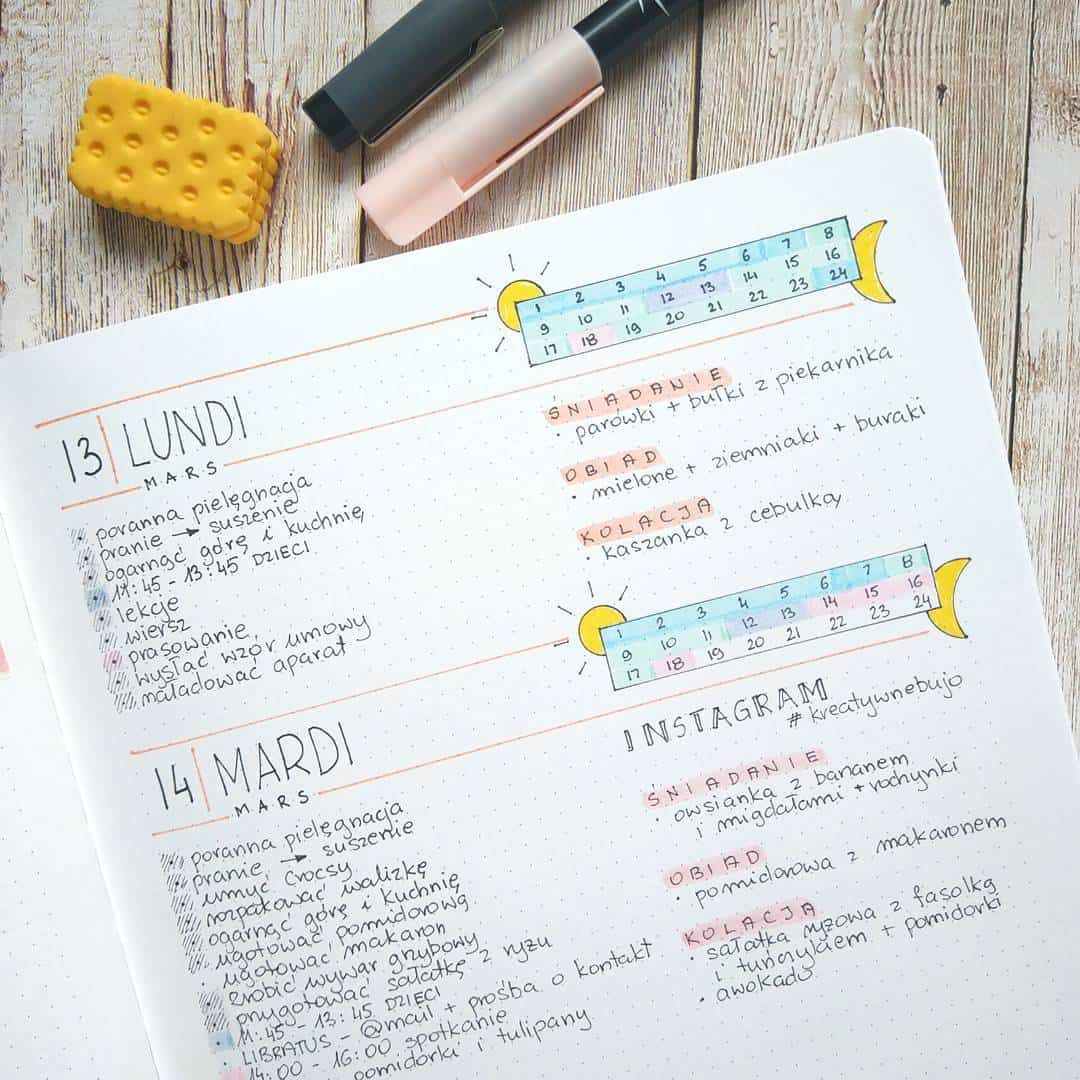 1 2 3 4 5 6 7 8
9 10 11 12 13 14 15 16
17 18 19 20 21 22 23 24
13 LUNDI
MARS
poranna pielęgnacja
pranie → suszenie
ogarnąć górę i kuchnię
11:45 - 13:45 DZIECI
lekcje
wiersz
prasowanie
wysłać wzór umowy
naładować aparat
ŚNIADANIE
• parówki + bułki z piekarnika
OBIAD
• mielone + ziemniaki + buraki
KOLACJA
• kaszanka z cebulką
1 2 3 4 5 6 7 8
9 10 11 12 13 14 15 16
17 18 19 20 21 22 23 24
14 MARDI
MARS
poranna pielęgnacja
pranie → suszenie
umyć crocsy
rozpakować walizkę
ogarnąć górę i kuchnię
ugotować pomidorową
ugotować makaron
zrobić wywar grzybowy
przygotować sałatkę z ryżu
11:45 - 13:45 DZIECI
LIBRATUS - @mail + prośba o kontakt
14:00 - 16:00 spotkanie
pomidorki i tulipany
INSTAGRAM
#kreatywnebujo
ŚNIADANIE
• owsianka z bananem
i migdałami + rodzynki
OBIAD
• pomidorowa z makaronem
KOLACJA
• sałatka ryżowa z fasolką
i tuńczykiem + pomidorki
• awokado